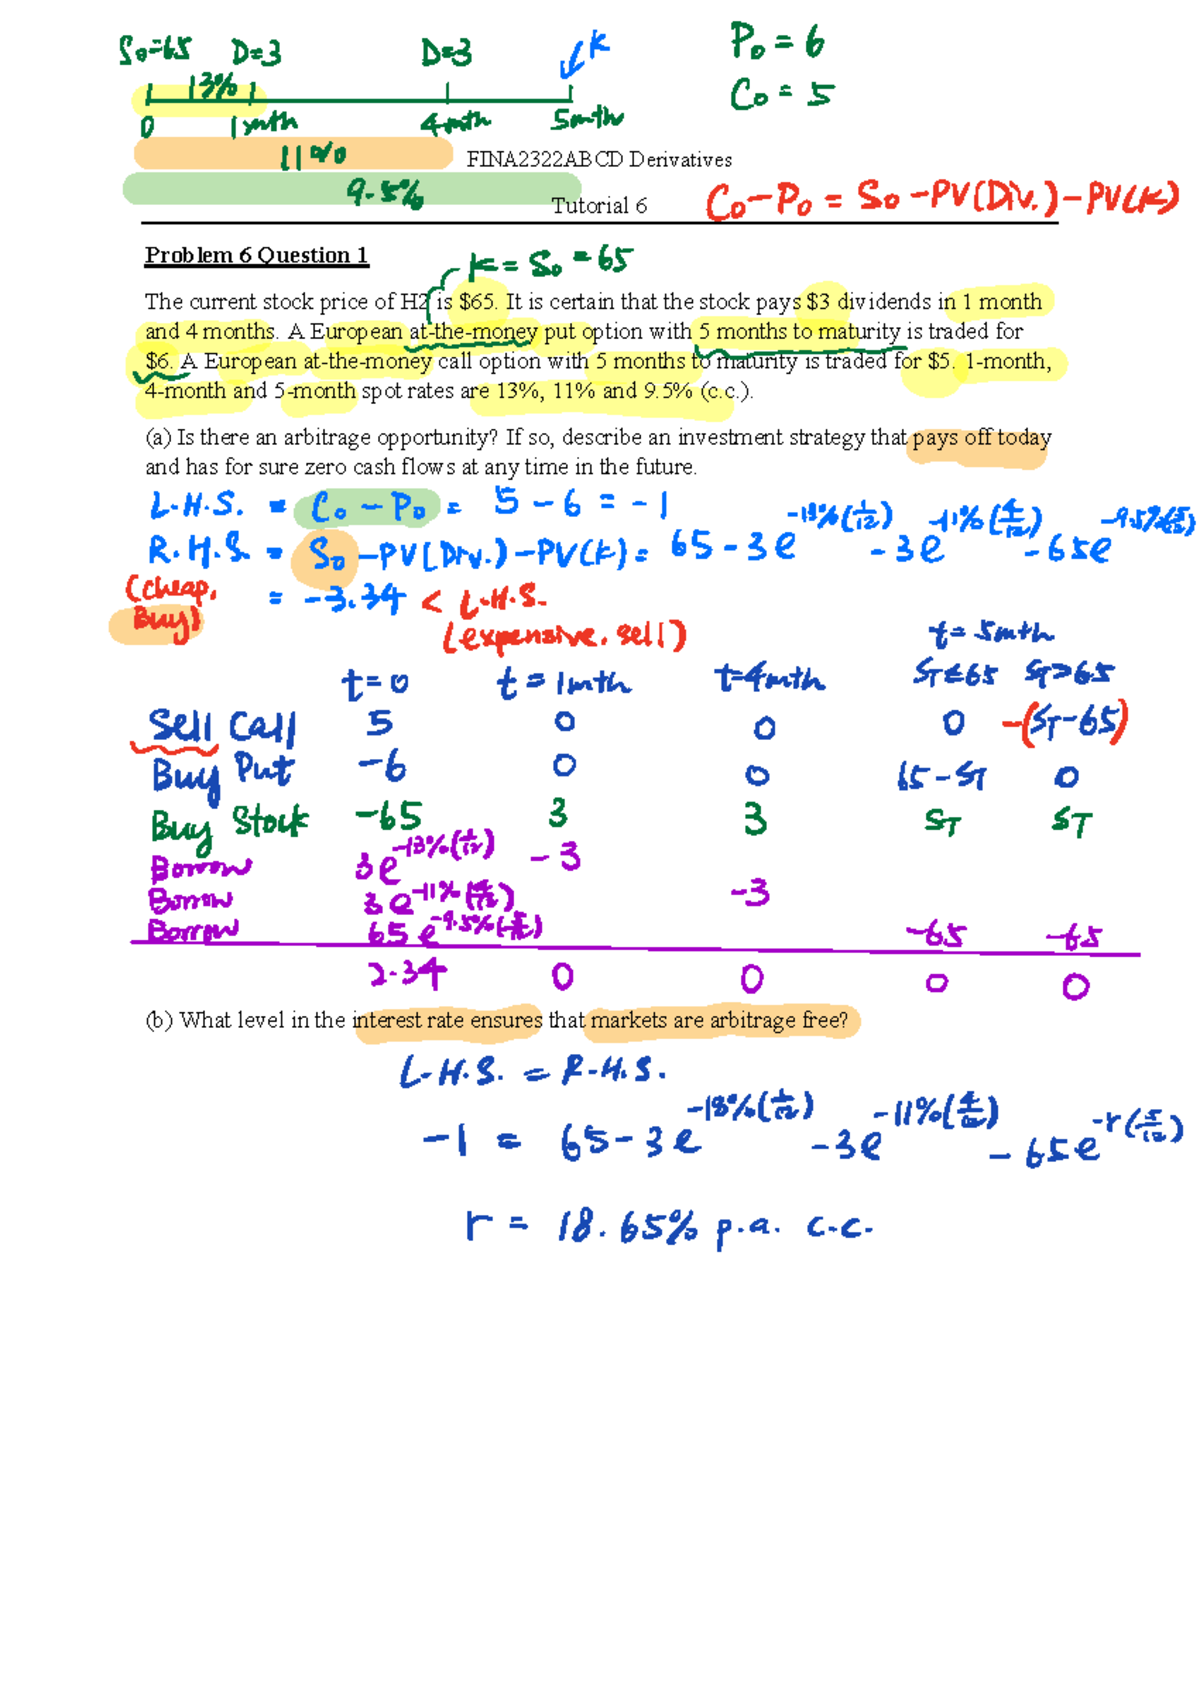 S₀=65 D=3 D=3 K P₀ = 6
13% C₀ = 5
0 1mth 4mth 5mth
11% FINA2322ABCD Derivatives
9.5% Tutorial 6 C₀-P₀ = S₀ -PV(Div.)-PV(K)
Problem 6 Question 1 K = S₀ = 65
The current stock price of H2 is $65. It is certain that the stock pays $3 dividends in 1 month
and 4 months. A European at-the-money put option with 5 months to maturity is traded for
$6. A European at-the-money call option with 5 months to maturity is traded for $5. 1-month,
4-month and 5-month spot rates are 13%, 11% and 9.5% (c.c.).
(a) Is there an arbitrage opportunity? If so, describe an investment strategy that pays off today
and has for sure zero cash flows at any time in the future.
L.H.S. = C₀ - P₀ = 5 - 6 = -1
R.H.S. = S₀ -PV(Div.)-PV(K) = 65 - 3e^-13%(1/12) - 3e^-11%(4/12) - 65e^-9.5%(5/12)
(cheap, = -3.34 < L.H.S.
Buy) (expensive. sell)
t= 5mth
t=0 t=1mth t=4mth ST≤65 ST>65
Sell Call 5 0 0 0 -(ST-65)
Buy Put -6 0 0 65-ST 0
Buy Stock -65 3 3 ST ST
Borrow 3e^-13%(1/12) -3
Borrow 3e^-11%(4/12) -3
Borrow 65e^-9.5%(5/12) -65 -65
2.34 0 0 0 0
(b) What level in the interest rate ensures that markets are arbitrage free?
L.H.S. = R.H.S.
-1 = 65-3e^-13%(1/12) - 3e^-11%(4/12) - 65e^-r(5/12)
r = 18.65% p.a. c.c.